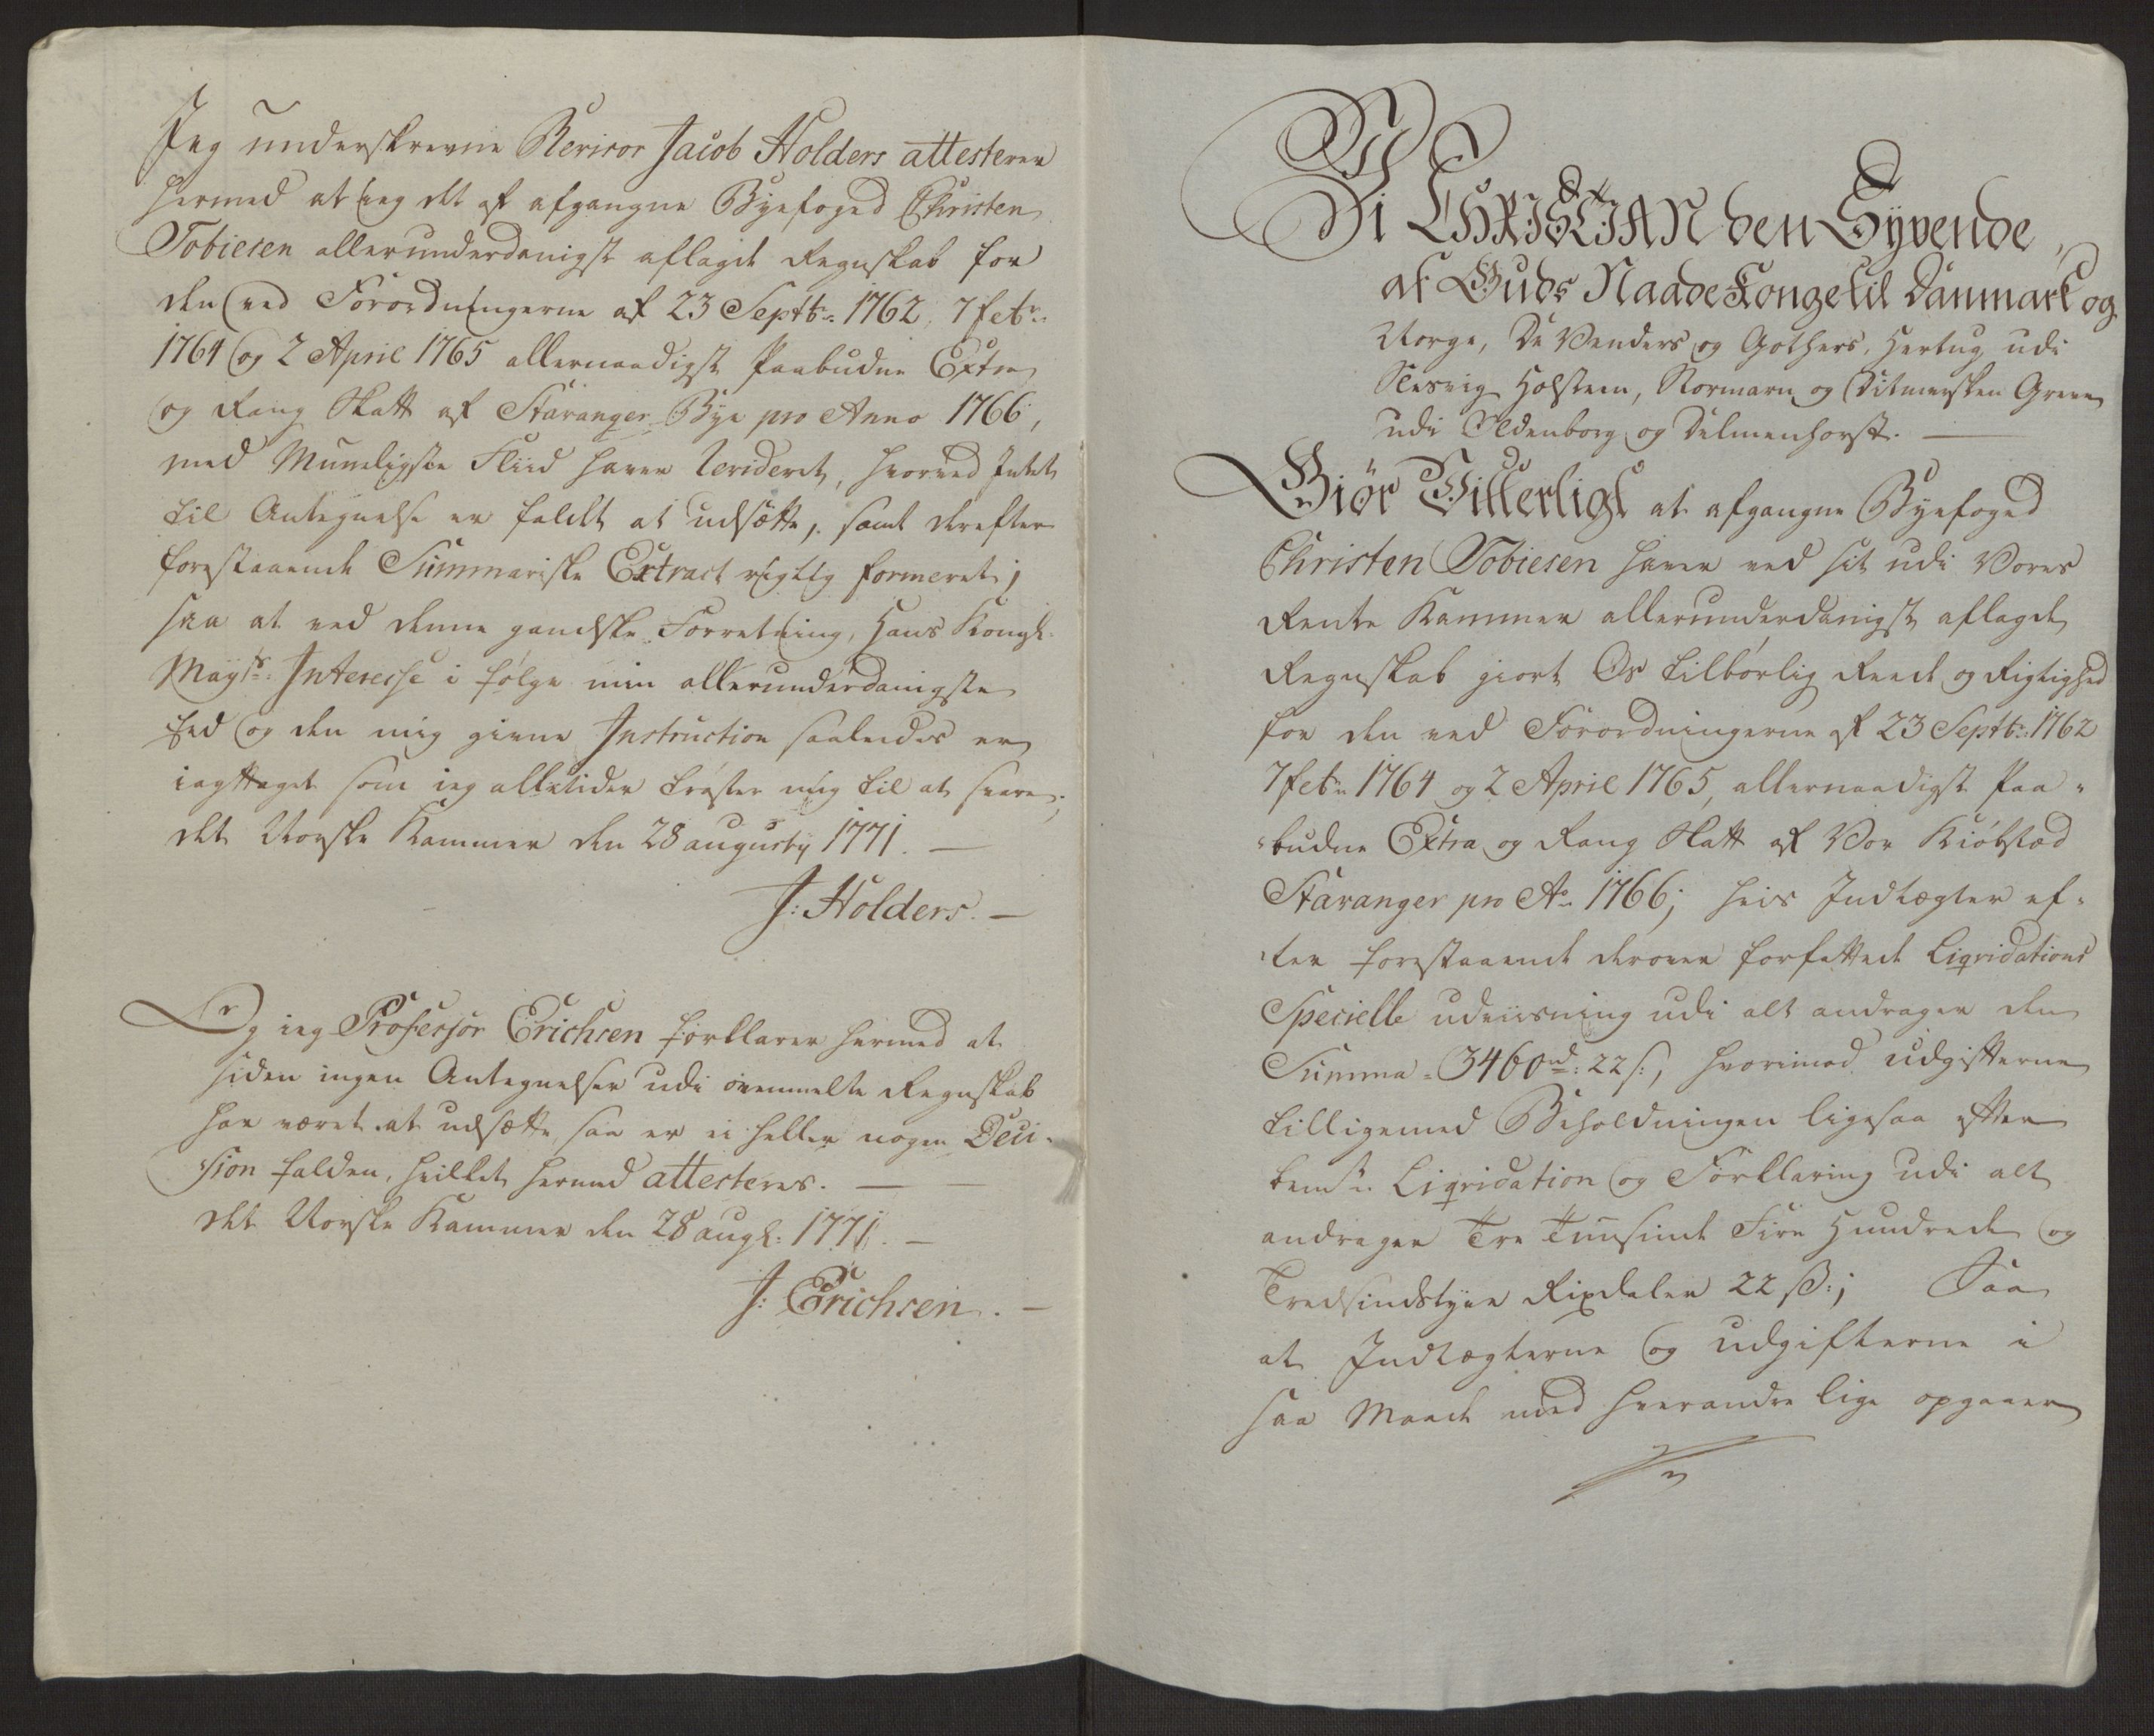 Jeg underskrevne Revisor Jacob Holders attesterer
hermed at ieg det af afgangne Byefoged Christen
Tobiesen allerunderdanigst aflagde Regnskab for
den ved Forordningerne af 23 Septbr: 1762, 7 febr:
1764 og 2 April 1765 allernaadigst Paabudne Extra
og Rang Skatt af Stavanger Bye pro Anno 1766,
med Mueligste Fliid haver revideret, hvorved Intet
til Antegnelse er faldet at udsætte, samt derefter
forestaaende Summariske Extract rigtig formeret;
saa at ved denne gandske Forretning, Hans Kongl:
Mayts: Interesse i følge min allerunderdanigste
Eed og den mig givne Instruction saaledes er
iagttaget som ieg alletider trøster mig til at svare;
det Norske Kammer den 28 augusty 1771. —
J: Holders. —
Og ieg Professor Erichsen forklarer hermed at
siden ingen Antegnelser udi ovenmelte Regnskab
har været at udsætte, saa er ei heller nogen Deci-
sion falden, hvilket hermed attesteres. —
det Norske Kammer den 28 augs: 1771. —
J: Erichsen. —
Vi CHRISTIAN den Syvende,
af Guds Naade Konge til Danmark og
Norge, De Venders og Gothers, Hertug udi
Slesvig Holsteen, Stormarn og Ditmersken Greve
udi Oldenborg og Delmenhorst. —
Giør Vitterligt at afgangne Byefoged
Christen Tobiesen haver ved sit udi Vores
Rente Kammer allerunderdanigst aflagde
Regnskab giort Os tilbørlig Reede og Rigtighed
for den ved Forordningerne af 23 Septbr: 1762
7 febr: 1764 og 2 April 1765, allernaadigst Paa-
budne Extra og Rang Skatt af Vor Kiøbstæd
Stavanger pro Ao: 1766; hvis Indtægter ef-
ter forestaaende derover forfattede Liqvidations
Specielle udviisning udi alt andrager den
Summa 3460 rd: 22 s:, hvorimod udgifterne
tilligemed Beholdningen ligesaa efter
bemte: Liqvidation og Forklaring udi alt
andrager Tre Tuusinde Fire Hundrede og
Tredsindstyve Rixdaler 22 ß:; Saa
at Indtægterne og udgifterne i
saa Maade med hverandre lige opgaaer